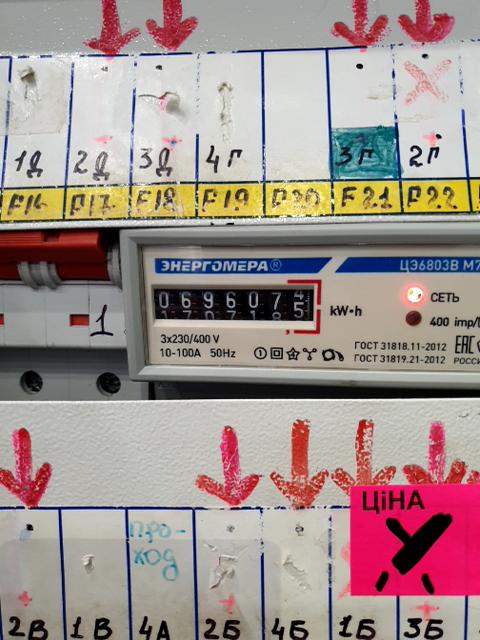 1Д 2Д 3Д 4Г 3Г 2Г
F16 F17 F18 F19 F20 F21 F22
ЭНЕРГОМЕРА® ЦЭ6803В М7
0696075 kW•h
СЕТЬ
400 imp/
3x230/400 V
10-100A 50Hz
ГОСТ 31818.11-2012
ГОСТ 31819.21-2012
EAC
РОССИ
1
ЦіНА
ПРО-
ХОД
2В 1В 4А 2Б 4Б 1Б 3Б